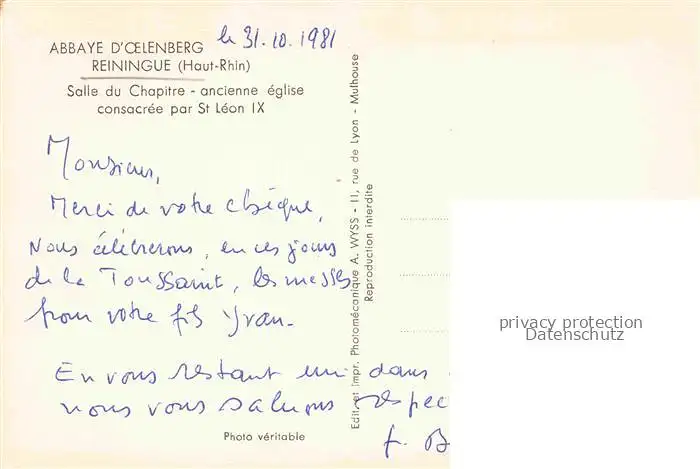 le 31.10.1981
ABBAYE D'ŒLENBERG
REININGUE (Haut-Rhin)
Salle du Chapitre - ancienne église
consacrée par St Léon IX
Monsieur,
Merci de votre chèque,
Nous célébrerons, en ces jours
de la Toussaint, les messes
pour votre fils Yvan.
En vous restant uni dans
nous vous saluons respec
f. B
Photo véritable
Edit. et Impr. Photomécanique A. WYSS - 11, rue de Lyon - Mulhouse
Reproduction interdite
privacy protection
Datenschutz